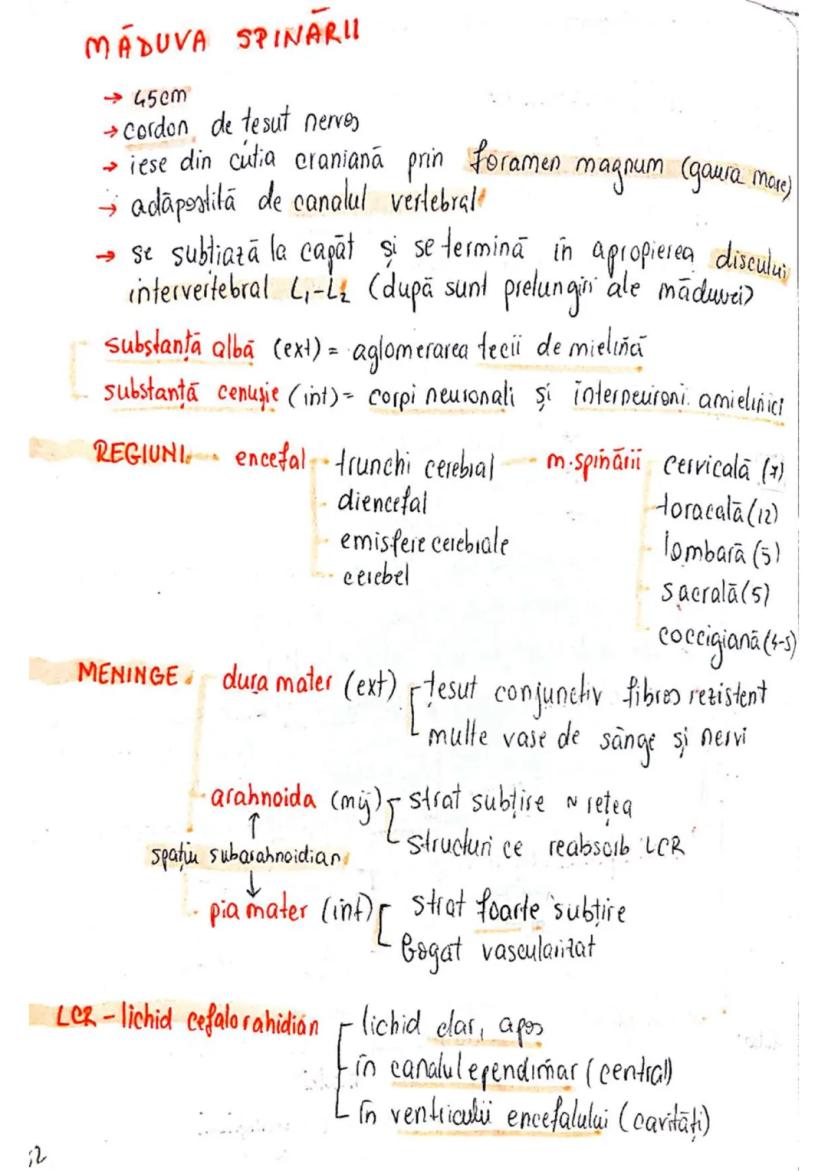 MĂDUVA SPINĂRII
→ 45cm
→ cordon de țesut nervos
→ iese din cutia craniană prin foramen magnum (gaura mare)
→ adăpostită de canalul vertebral
→ se subțiază la capăt și se termină în apropierea discului
intervertebral L1-L2 (după sunt prelungiri ale măduvei)
substanță albă (ext) = aglomerarea tecii de mielină
substanță cenușie (int) = corpi neuronali și interneuroni amielinici
REGIUNI encefal trunchi cerebral m.spinării cervicală (7)
diencefal toracală (12)
emisfere cerebrale lombară (5)
cerebel sacrală (5)
coccigiană (4-5)
MENINGE dura mater (ext) țesut conjunctiv fibros rezistent
multe vase de sânge și nervi
arahnoida (mij) strat subțire ~ rețea
structuri ce reabsorb LCR
↑
spațiu subarahnoidian
↓
pia mater (int) strat foarte subțire
bogat vascularizat
LCR - lichid cefalorahidian lichid clar, apos
în canalul ependimar (central)
în ventriculii encefalului (cavități)